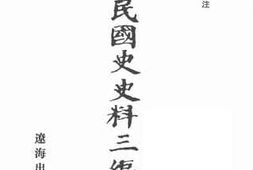 注
民國史史料三編
遼海出